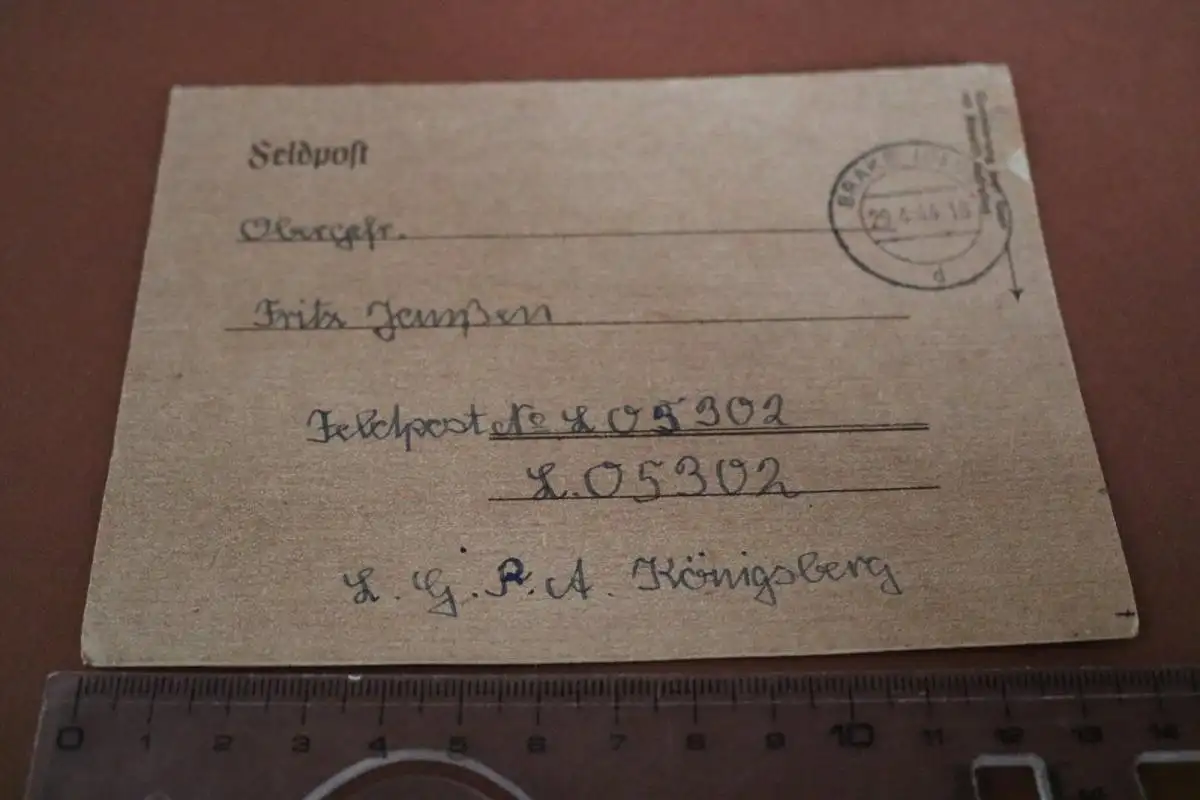 Feldpost
Obergefr.
Fritz Janßen
Feldpost No L 05302
L. 05302
L. G. P. A. Königsberg
BRAKE
29.4.44
d
0 1 2 3 4 5 6 7 8 9 10 11 12 13 14